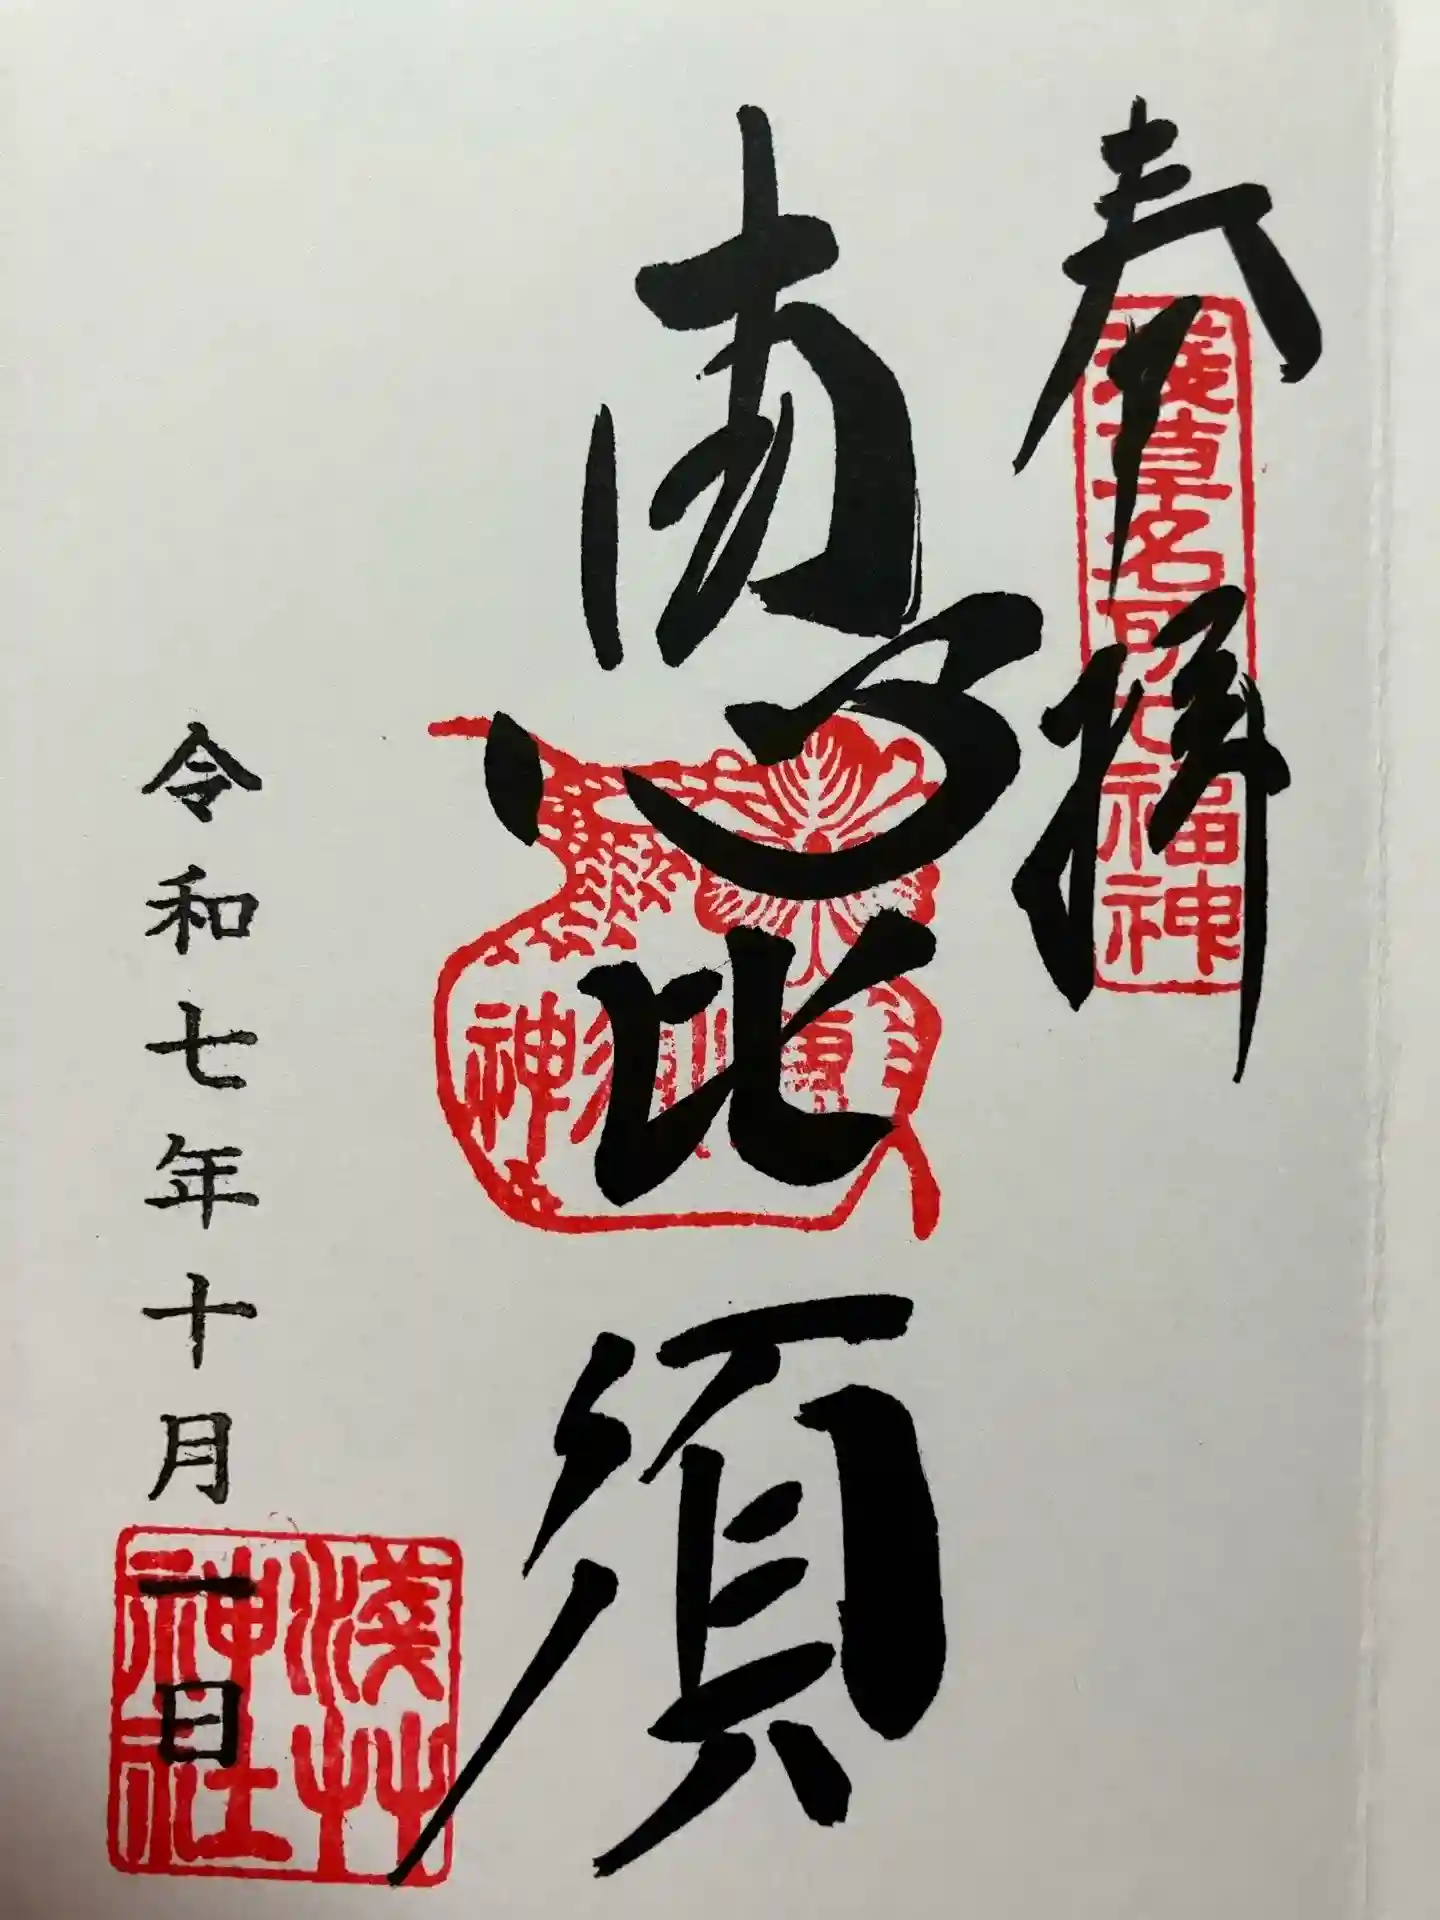 奉拝
浅草名所七福神
恵比須
恵比須神
令和七年十月一日
浅草神社